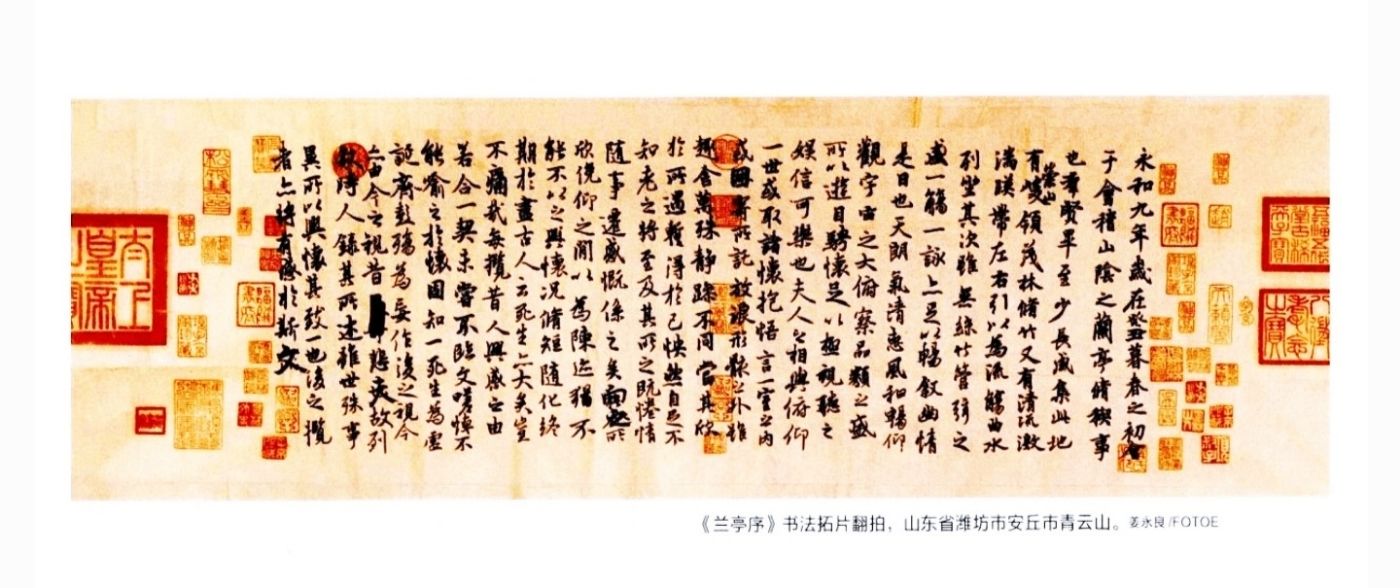 永和九年歲在癸丑暮春之初會
于會稽山陰之蘭亭脩稧事
也羣賢畢至少長咸集此地
有崇山峻領茂林脩竹又有清流激
湍暎帶左右引以為流觴曲水
列坐其次雖無絲竹管弦之
盛一觴一詠亦足以暢敘幽情
是日也天朗氣清惠風和暢仰
觀宇宙之大俯察品類之盛
所以遊目騁懷足以極視聽之
娛信可樂也夫人之相與俯仰
一世或取諸懷抱悟言一室之內
或因寄所託放浪形骸之外雖
趣舍萬殊靜躁不同當其欣
於所遇暫得於己怏然自足不
知老之將至及其所之既惓情
隨事遷感慨係之矣向之所
欣俛仰之閒以為陳迹猶不
能不以之興懷況脩短隨化終
期於盡古人云死生亦大矣豈
不痛哉每攬昔人興感之由
若合一契未嘗不臨文嗟悼不
能喻之於懷固知一死生為虛
誕齊彭殤為妄作後之視今
亦由今之視昔悲夫故列
敘時人錄其所述雖世殊事
異所以興懷其致一也後之攬
者亦將有感於斯文
《兰亭序》书法拓片翻拍，山东省潍坊市安丘市青云山。姜永良/FOTOE